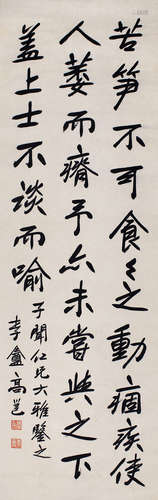 苦笋不可食食之動痼疾使
人萎而瘠予亦未嘗與之下
蓋上士不談而喻
子聞仁兄大雅鑒之
李盦高邕